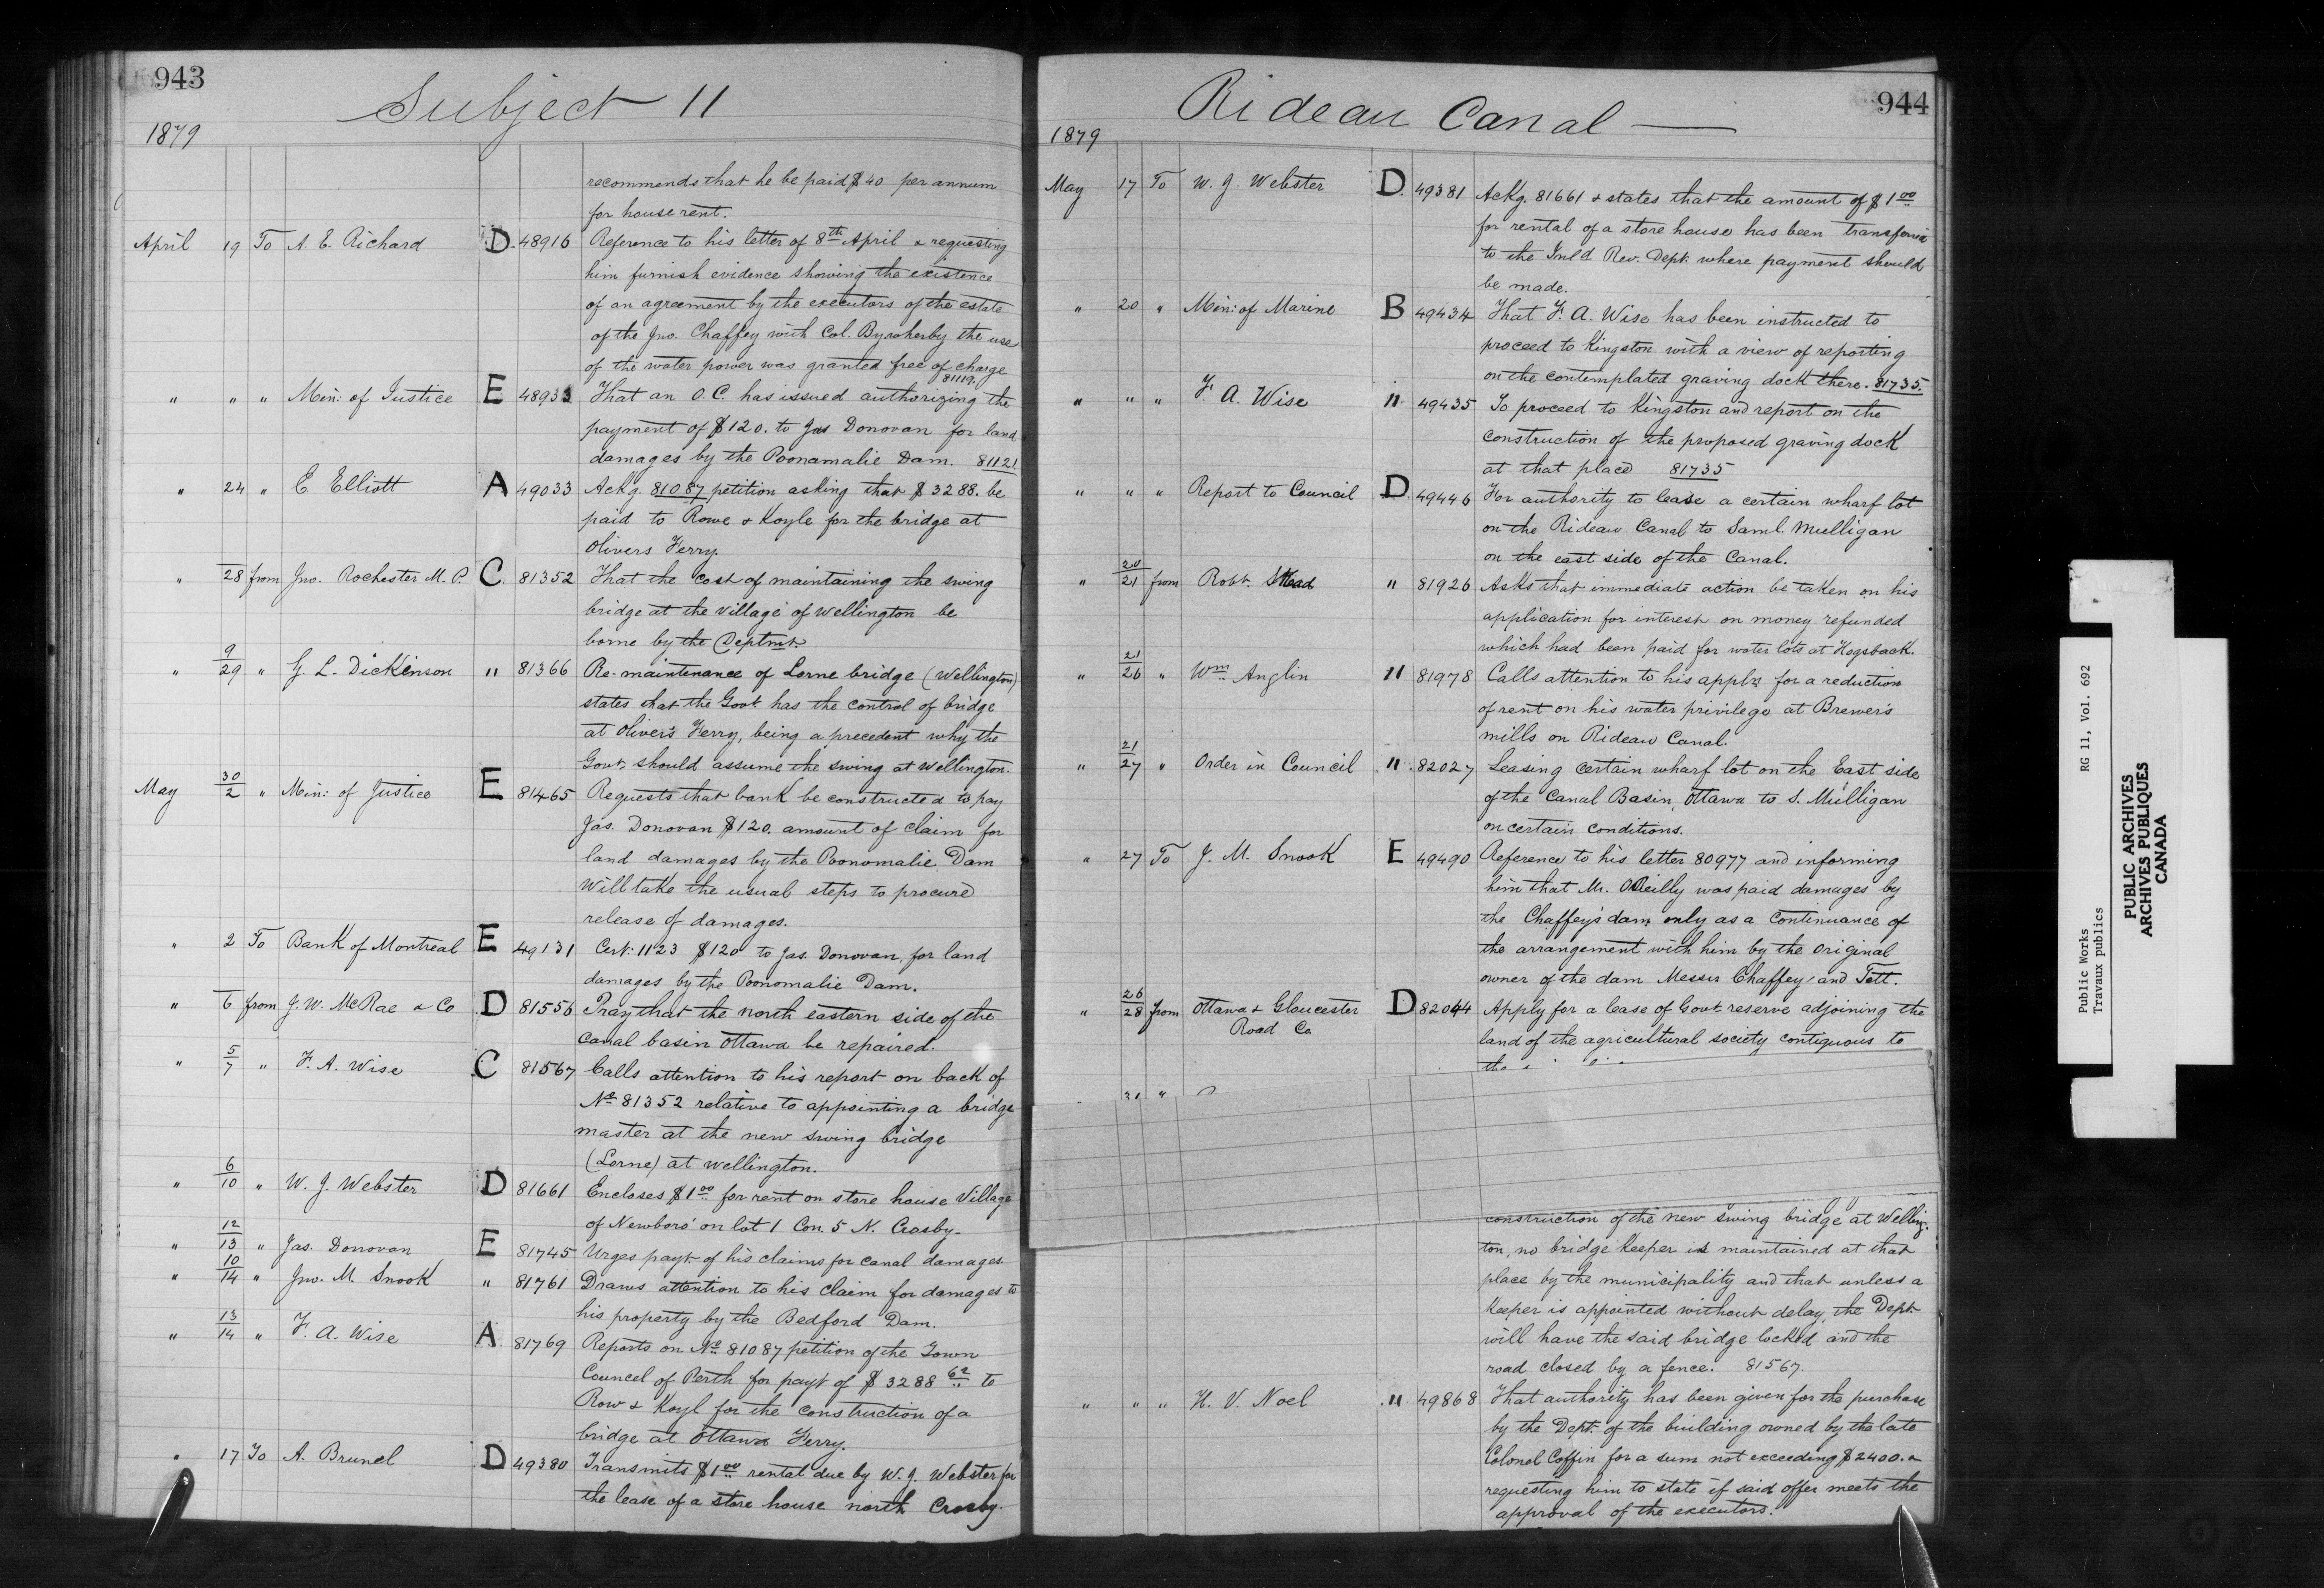 943
Subject 11
1879
recommends that he be paid $40 per annum
for house rent.
April 19 To A. E. Richard D. 48916 Reference to his letter of 8th April & requesting
him furnish evidence showing the existence
of an agreement by the executors of the estate
of the Jno. Chaffey with Col. By wherby the use
of the water power was granted free of charge
81119.
" " " Min: of Justice E 48933 That an O.C. has issued authorizing the
payment of $120. to Jas Donovan for land
damages by the Poonamalie Dam. 81121.
" 24 " E Elliott A 49033 Ackg. 81087 petition asking that $3288. be
paid to Rowe & Koyle for the bridge at
Olivers Ferry.
" 28 from Jno. Rochester M.P. C. 81352 That the cost of maintaining the swing
bridge at the village of Wellington be
borne by the Deptmt.
" 9/29 " G. L. Dickinson " 81366 Re-maintenance of Lorne bridge (Wellington)
states that the Govt has the control of bridge
at Oliver's Ferry, being a precedent why the
Govt. should assume the swing at Wellington.
May 30/2 " Min: of Justice E 81465 Requests that bank be constructed to pay
Jas. Donovan $120. amount of claim for
land damages by the Poonomalie Dam
Will take the usual steps to procure
release of damages.
" 2 To Bank of Montreal E 49131 Cert: 1123 $120 to Jas. Donovan, for land
damages by the Poonomalie Dam.
" 6 from J. W. McRae & Co D 81556 Pray that the north eastern side of the
canal basin Ottawa be repaired.
" 5/7 " F. A. Wise C 81567 Calls attention to his report on back of
No 81352 relative to appointing a bridge
master at the new swing bridge
(Lorne) at Wellington.
" 6/10 " W. J. Webster D 81661 Encloses $1.00 for rent on store house Village
of Newboro' on lot 1 Con. 5 N. Crosby.
" 12/13 " Jas. Donovan E 81745 Urges payt. of his claims for canal damages
" 10/14 " Jno. M. Snook " 81761 Draws attention to his claim for damages to
his property by the Bedford Dam.
" 13/14 " F. A. Wise A. 81769 Reports on No 81087 petition of the Town
Council of Perth for payt of $3288 62 to
Row & Koyl for the construction of a
bridge at Ottawa Ferry.
" 17 To A. Brunel D 49380 Transmits $1.00 rental due by W. J. Webster for
the lease of a store house north Crosby.
944
Rideau Canal —
1879
May 17 To W. J. Webster D. 49381 Ackg. 81661 & states that the amount of $1.00
for rental of a store house has been
to the Inld Rev. Dept. where payment should
be made.
" 20 " Min: of Marine B 49434 That F. A. Wise has been instructed to
proceed to Kingston with a view of reporting
on the contemplated graving dock there. 81735.
" " " F. A. Wise " 49435 To proceed to Kingston and report on the
construction of the proposed graving dock
at that place 81735
" " " Report to Council D. 49446 For authority to lease a certain wharf lot
on the Rideau Canal to Saml. Mulligan
on the east side of the Canal.
" 20/21 from Robt. Stead " 81926 Asks that immediate action be taken on his
application for interest on money refunded
which had been paid for water lots at Hogsback.
" 21/26 " Wm Anglin " 81978 Calls attention to his appln for a reduction
of rent on his water privilege at Brewer's
mills on Rideau Canal.
" 21/27 " Order in Council " 82027 Leasing certain wharf lot on the East side
of the Canal Basin, Ottawa to S. Mulligan
on certain conditions.
" 27 To J. M. Snook E 49490 Reference to his letter 80977 and informing
him that Mr. OReilly was paid damages by
the Chaffey's dam only as a continuance of
the arrangement with him by the original
owner of the dam Messrs Chaffey and Tett.
" 26/28 from Ottawa & Gloucester D 82044 Apply for a lease of Govt reserve adjoining the
Road Co land of the agricultural society contiguous to
the
31 "
construction of the new swing bridge at Welling-
ton, no bridge keeper is maintained at that
place by the municipality and that unless a
keeper is appointed without delay, the Dept
will have the said bridge locked and the
road closed by a fence. 81567.
" " " H. V. Noel " 49868 That authority has been given for the purchase
by the Dept. of the building owned by the late
Colonel Coffin for a sum not exceeding $2400. &
requesting him to state if said offer meets the
approval of the executors.
Public Works RG 11, Vol. 692
Travaux publics
PUBLIC ARCHIVES
ARCHIVES PUBLIQUES
CANADA